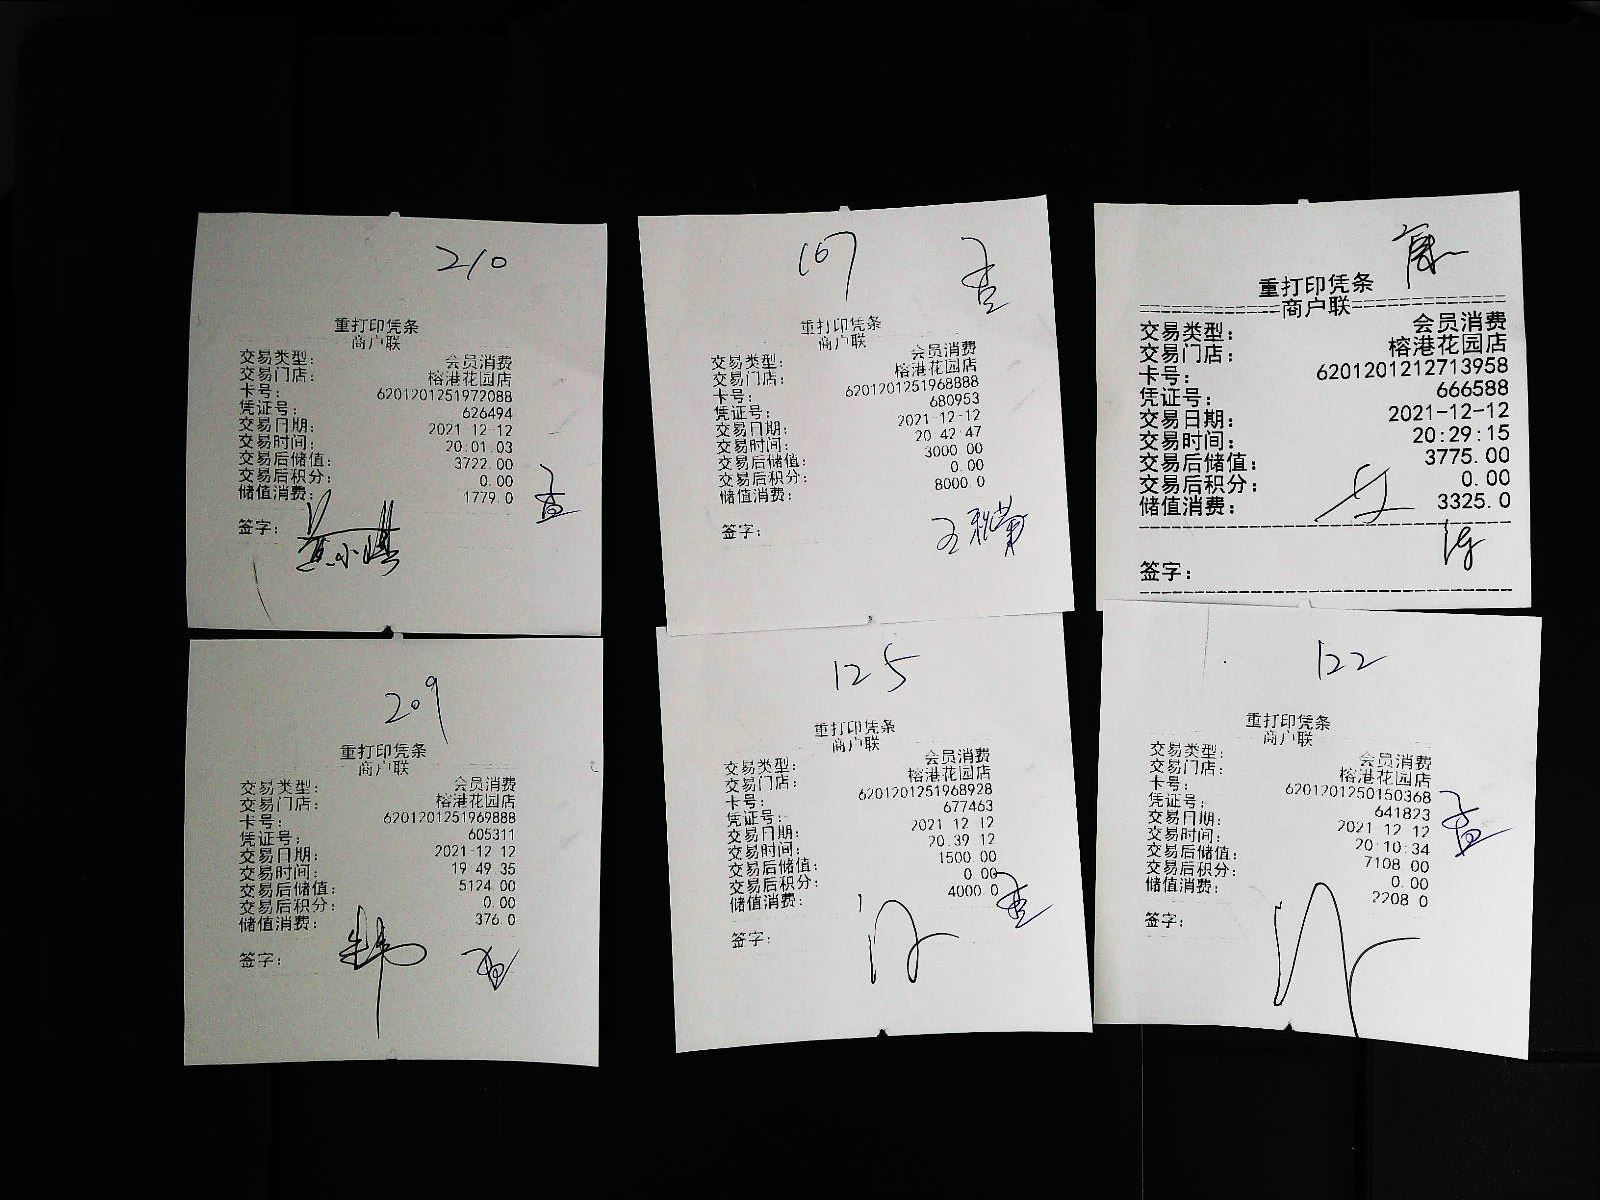 210
重打印凭条
商户联
交易类型: 会员消费
交易门店: 榕港花园店
卡号: 6201201251972088
凭证号: 626494
交易日期: 2021-12-12
交易时间: 20:01:03
交易后储值: 3722.00
交易后积分: 0.00
储值消费: 1779.0
签字:
107
重打印凭条
商户联
交易类型: 会员消费
交易门店: 榕港花园店
卡号: 6201201251968888
凭证号: 680953
交易日期: 2021-12-12
交易时间: 20:42:47
交易后储值: 3000.00
交易后积分: 0.00
储值消费: 8000.0
签字:
重打印凭条
商户联
交易类型: 会员消费
交易门店: 榕港花园店
卡号: 6201201212713958
凭证号: 666588
交易日期: 2021-12-12
交易时间: 20:29:15
交易后储值: 3775.00
交易后积分: 0.00
储值消费: 3325.0
签字:
209
重打印凭条
商户联
交易类型: 会员消费
交易门店: 榕港花园店
卡号: 6201201251969888
凭证号: 605311
交易日期: 2021-12-12
交易时间: 19:49:35
交易后储值: 5124.00
交易后积分: 0.00
储值消费: 376.0
签字:
125
重打印凭条
商户联
交易类型: 会员消费
交易门店: 榕港花园店
卡号: 6201201251968928
凭证号: 677463
交易日期: 2021-12-12
交易时间: 20:39:12
交易后储值: 1500.00
交易后积分: 0.00
储值消费: 4000.0
签字:
122
重打印凭条
商户联
交易类型: 会员消费
交易门店: 榕港花园店
卡号: 6201201250150368
凭证号: 641823
交易日期: 2021-12-12
交易时间: 20:10:34
交易后储值: 7108.00
交易后积分: 0.00
储值消费: 2208.0
签字: